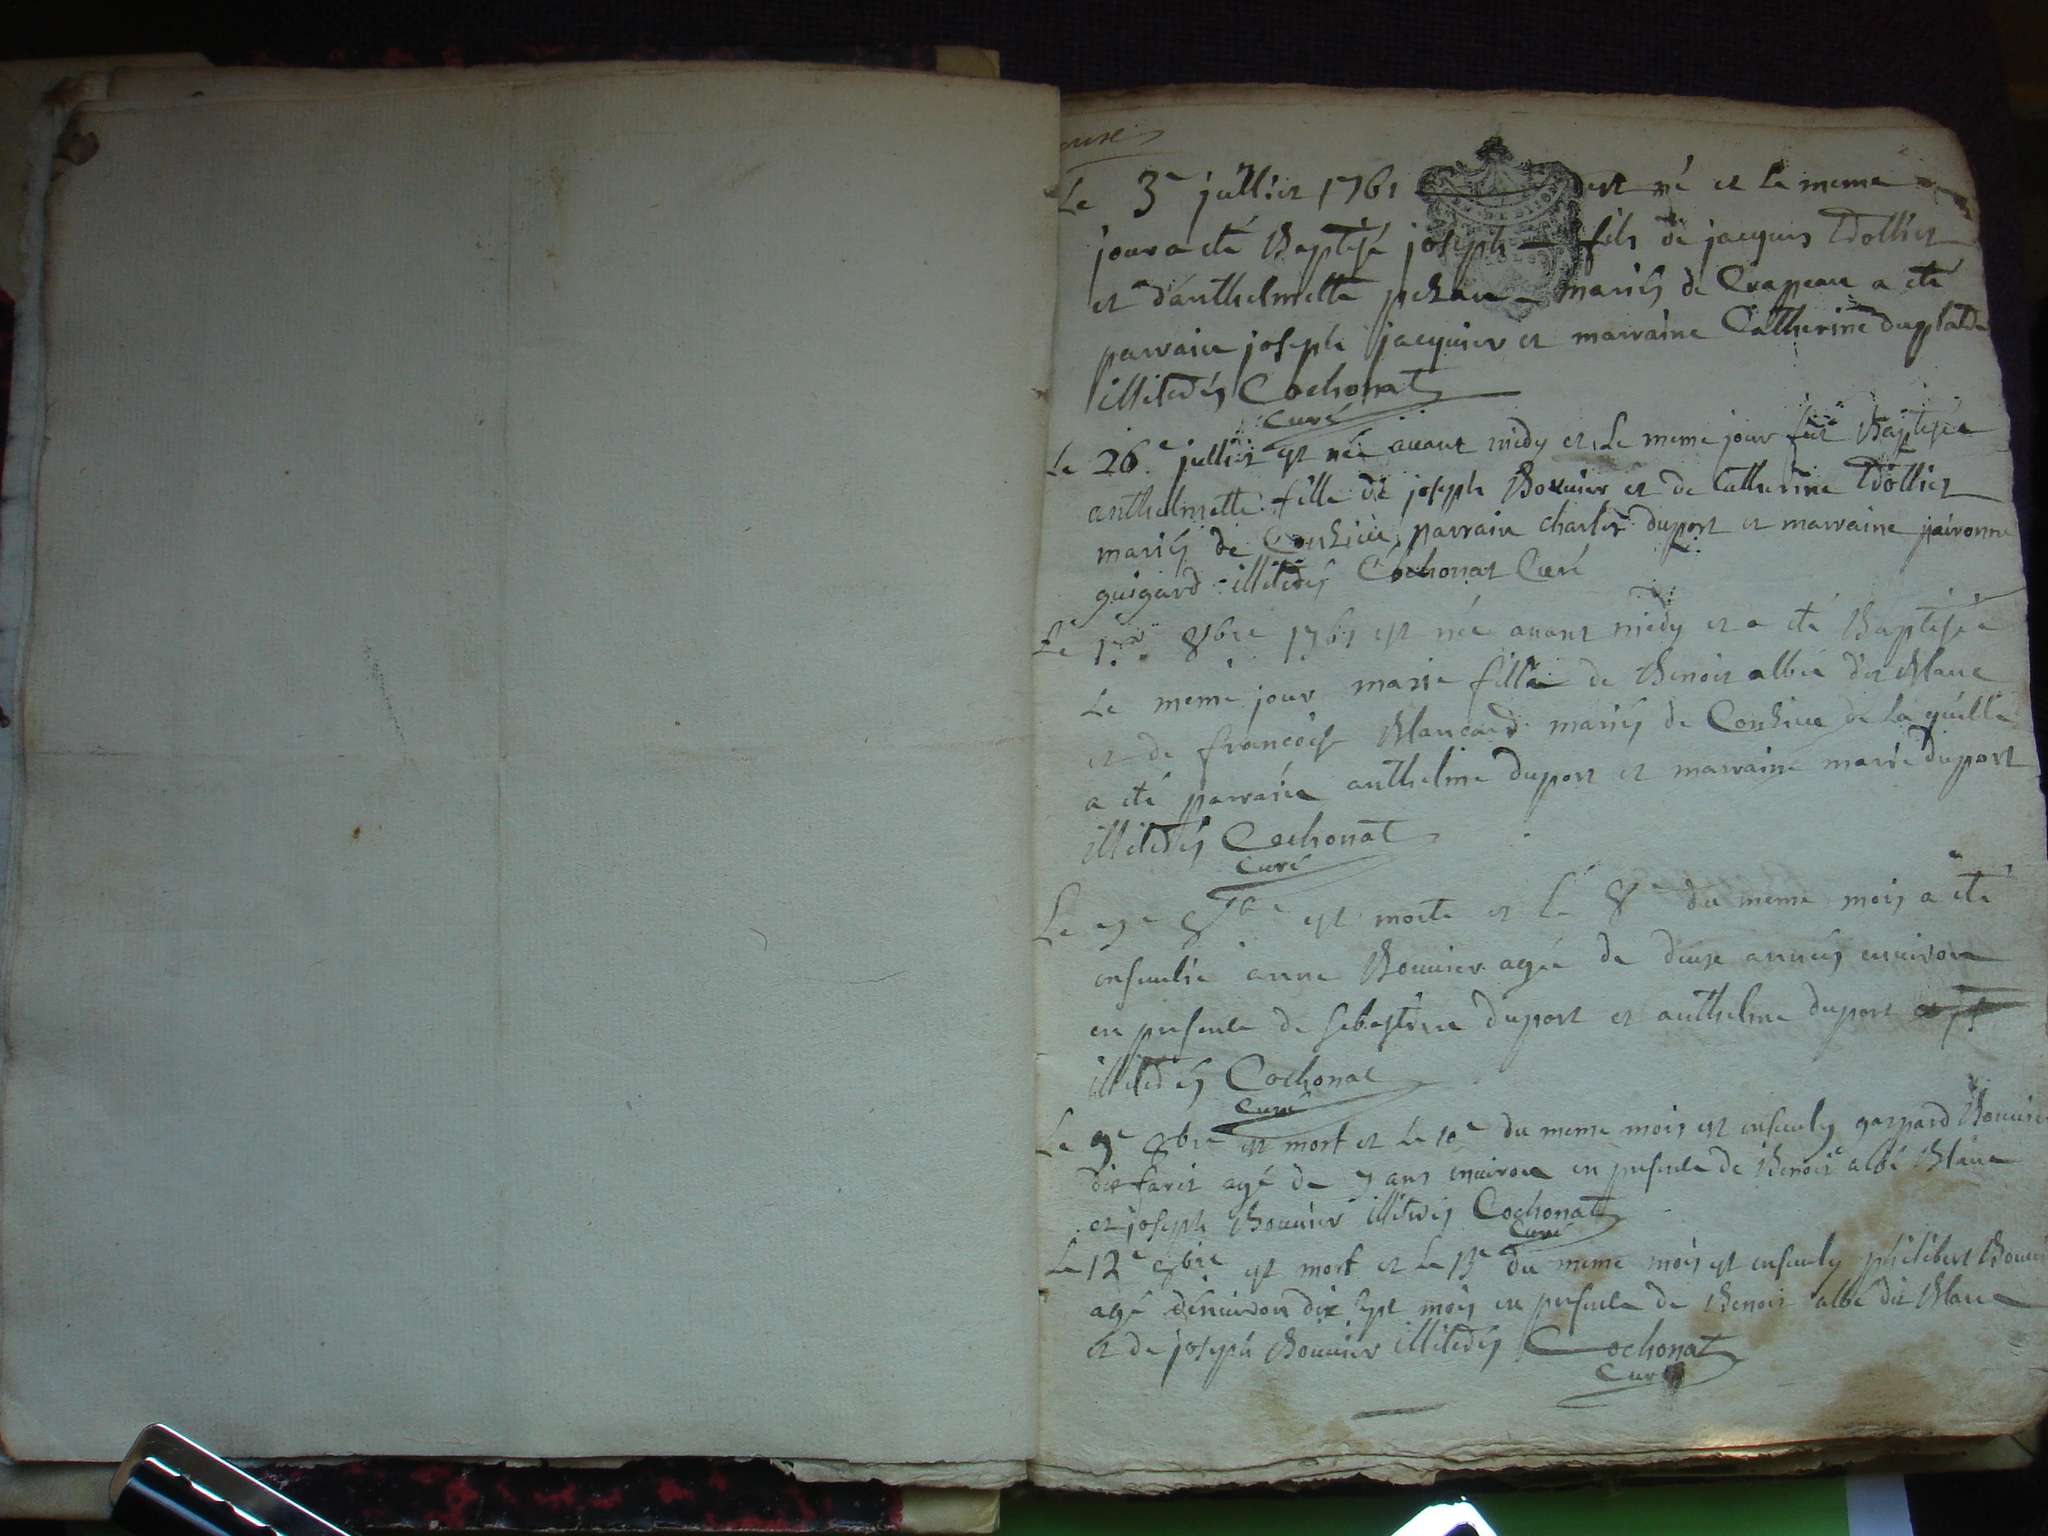 Le 3e jullier 1761 est né et le meme
jour a eté Baptisé joseph fils de jacques Dollier
et d'anthelmette mariés de Crapeau a eté
parrain joseph jacquier et marraine Catherine duplatde
illiterés Cochonat
Curé
Le 26e jullier est née avant midy et le meme jour fut Baptisée
anthelmette fille de joseph Bouvier et de Catherine Dollier
mariés de Conzieu parrain charles duport et marraine
guigard illiterés Cochonat Curé
Le 1er 8bre 1761 est née avant midy et a eté Baptisée
Le meme jour marie fille de Benoit albié dit Blanc
et de francoise Blancard mariés de Conzieu de la
a eté parrain anthelme duport et marraine marie duport
illiterés Cochonat
Curé
Le 7e 8bre est morte et le 8e du meme mois a eté
ensevelie anne Bouvier agée de deuse années environ
en presence de sebastien duport et anthelme duport
illiterés Cochonat
Curé
Le 9e 8bre est mort et le 10e du meme mois est ensevely gaspard Bouvier
dit agé de 7 ans environ en presence de Benoit albé Blanc
et joseph Bouvier illiterés Cochonat
Curé
Le 12e 8bre est mort et le 13e du meme mois est ensevely philibert Bouvier
agé d'environ dix sept mois en presence de Benoit albé dit Blanc
et de joseph Bouvier illiterés Cochonat
Curé